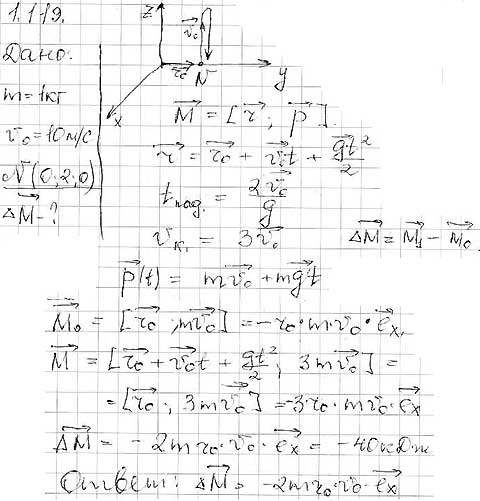 1.119.
Дано:
m = 1кг
v₀ = 10м/с
N(0; 2; 0)
ΔM⃗ - ?
z
y
x
r⃗₀
N
v⃗₀
M⃗ = [r⃗ ; p⃗].
r⃗ = r⃗₀ + v⃗₀t + g⃗t²/2
t пад. = 2v⃗₀/g
v⃗к. = 3v⃗₀
ΔM⃗ = M⃗₁ - M⃗₀
p⃗(t) = mv⃗₀ + mg⃗t
M⃗₀ = [r⃗₀ ; mv⃗₀] = -r₀·m·v₀·e⃗x.
M⃗ = [r⃗₀ + v⃗₀t + g⃗t²/2 ; 3mv⃗₀] =
= [r⃗₀ ; 3mv⃗₀] = -3·r₀·mv₀·e⃗x
ΔM⃗ = -2mr₀·v₀·e⃗x = -40
Ответ: ΔM⃗ = -2mr₀·v₀·e⃗x